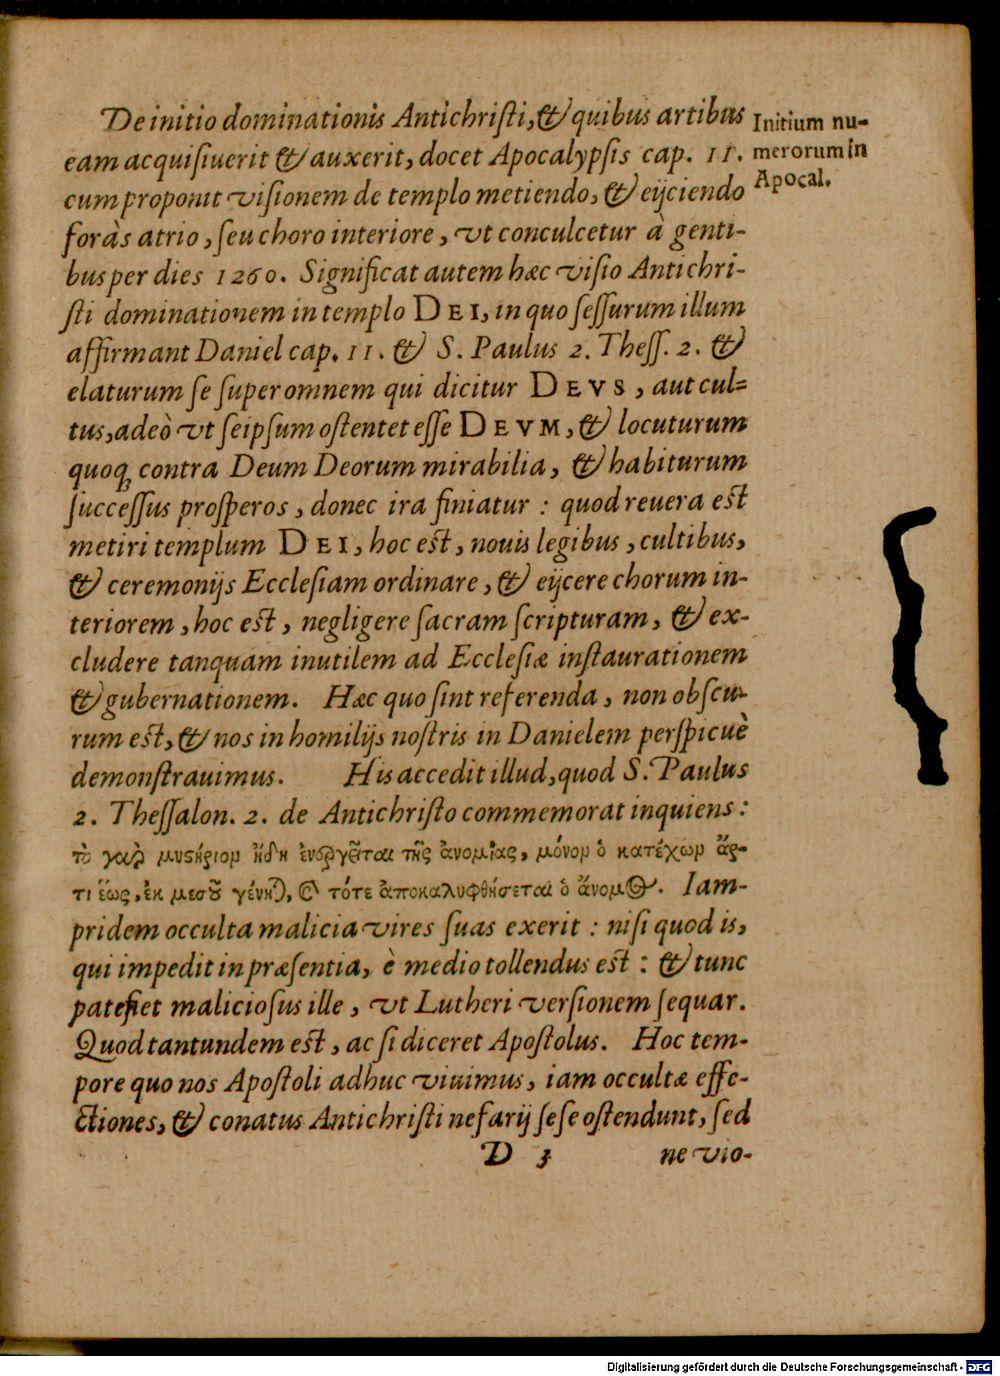 De initio dominationis Antichriſti, & quibus artibus
eam acquiſiuerit & auxerit, docet Apocalypſis cap. 11.
cum proponit viſionem de templo metiendo, & eijciendo
foràs atrio, ſeu choro interiore, vt conculcetur à genti-
bus per dies 1260. Significat autem hæc viſio Antichri-
ſti dominationem in templo DEI, in quo ſeſſurum illum
affirmant Daniel cap. 11. & S. Paulus 2. Theſſ. 2. &
elaturum ſe ſuper omnem qui dicitur DEVS, aut cul-
tus, adeò vt ſeipſum oſtentet eſſe DEVM, & locuturum
quoq; contra Deum Deorum mirabilia, & habiturum
ſucceſſus proſperos, donec ira finiatur : quod reuera eſt
metiri templum DEI, hoc eſt, nouis legibus, cultibus,
& ceremonijs Eccleſiam ordinare, & eijcere chorum in-
teriorem, hoc eſt, negligere ſacram ſcripturam, & ex-
cludere tanquam inutilem ad Eccleſiæ inſtaurationem
& gubernationem. Hæc quo ſint referenda, non obſcu-
rum eſt, & nos in homilijs noſtris in Danielem perſpicuè
demonſtrauimus. His accedit illud, quod S. Paulus
2. Theſſalon. 2. de Antichriſto commemorat inquiens :
τὸ γαρ μυϛήριον ἤδη ἐνεργεῖται τῆς ἀνομίας, μόνον ὁ κατέχων ἄρ-
τι ἕως, ἐκ μεσοῦ γένηται, καὶ τότε ἀποκαλυφθήσεται ὁ ἄνομος. Iam-
pridem occulta malicia vires ſuas exerit : niſi quod is,
qui impedit in præſentia, è medio tollendus eſt : & tunc
patefiet malicioſus ille, vt Lutheri verſionem ſequar.
Quod tantundem eſt, ac ſi diceret Apoſtolus. Hoc tem-
pore quo nos Apoſtoli adhuc viuimus, iam occultæ effe-
ctiones, & conatus Antichriſti nefarij ſeſe oſtendunt, ſed
D 3 ne vio-
Initium nu-
merorum in
Apocal.
Digitalisierung gefördert durch die Deutsche Forschungsgemeinschaft - DFG